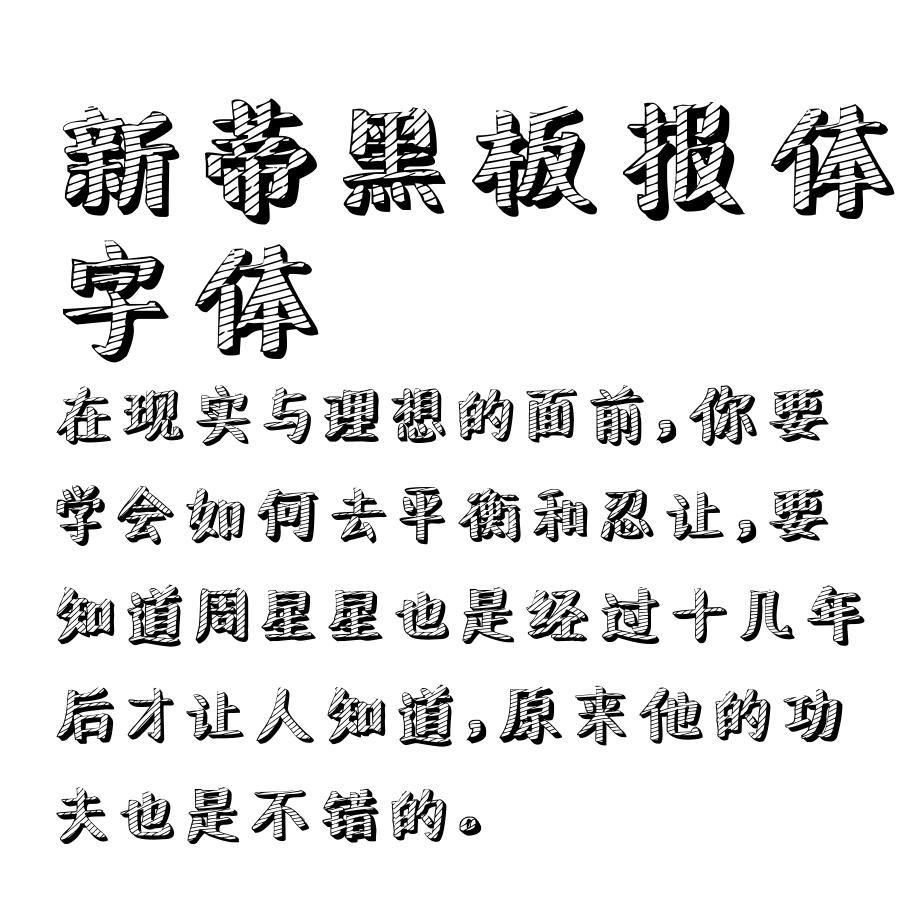 新蒂黑板报体
字体
在现实与理想的面前,你要
学会如何去平衡和忍让,要
知道周星星也是经过十几年
后才让人知道,原来他的功
夫也是不错的。